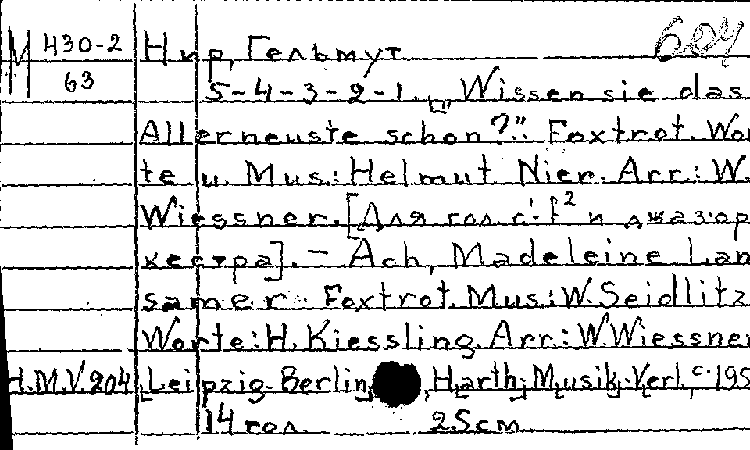 М 430-2 Нир, Гельмут 604
63 5-4-3-2-1. „Wissen sie das
Allerneuste schon?". Foxtrot. Wor
te u. Mus.: Helmut Nier. Arr.: W.
Wiessner. [Для гол с¹-f² и джаз-ор
кестра]. – Ach, Madeleine. Lan
samer Foxtrot. Mus.: W. Seidlitz
Worte: H. Kiessling. Arr.: W. Wiessner
H.M.V. 204 Leipzig-Berlin, Harth-Musik-Verl. c. 195
14 гол. 25 см